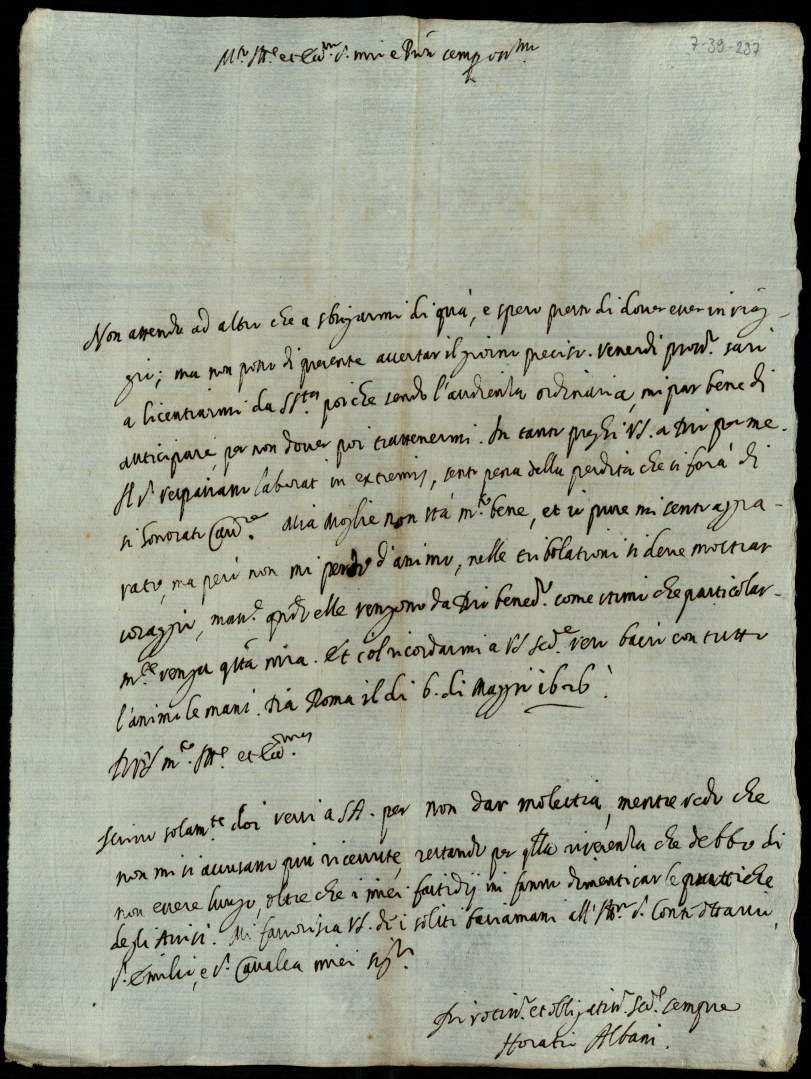 7-39-287
M.to Ill.re et Ecc.mo S.r mio e Pron semp oss.mo
Non attendo ad altro che a sbrigarmi di quà, e spero presto di dover esser in viag-
gio; ma non posso di presente accertar il giorno preciso. Venerdì pross.o sarò
a licentiarmi da SS.tà poiche sendo l'audienza ordinaria, mi par bene di
anticipare, per non dover poi trattenermi. In tanto preghi VS. a Dio per me.
Il S.r laborat in extremis, sento pena della perdita che si farà di
sì honorato Cav.re Mia Moglie non stà m.to bene, et io pure mi sento aggra-
vato, ma però non mi perdo d'animo, nelle tribolationi si deve mostrar
coraggio, mass.e qndo elle vengono da Dio bened.o come stimo che particolar-
m.te venga qsta mia. Et col ricordarmi a VS ser.e vero bacio con tutto
l'animo le mani. Dia Roma il dì 6. di Maggio 1626.
Di VS m.to Ill.re et Ecc.ma
Scrivo solam.te doi versi a SA. per non dar molestia, mentre vedo che
non mi si accusano più ricevute, restando per qlla riverenza che debbo di
non essere lungo, oltre che i miei fastidij mi fanno dimenticar le prattiche
degli Avisi. Mi favorisca VS. di i soliti baciamani all' Ill.mo S. Conte Ottavio,
S.r Emilio, e S.r Cavalca miei sig.ri
Divotiss.o et obligatiss.o ser.e sempre
Horatio Albani.